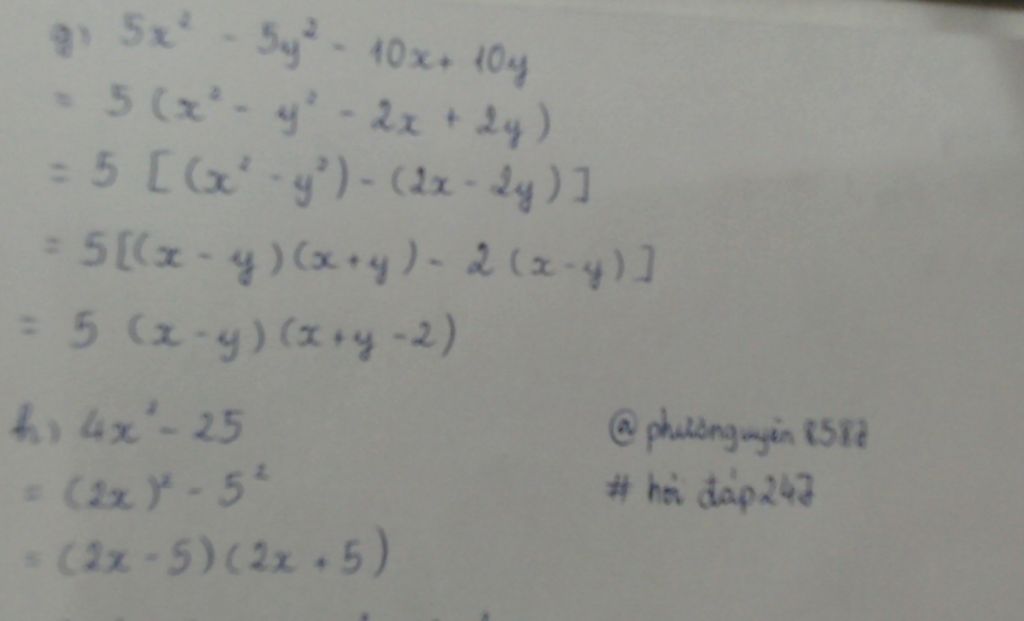 g) 5x² - 5y² - 10x + 10y
= 5 (x² - y² - 2x + 2y)
= 5 [(x² - y²) - (2x - 2y)]
= 5[(x - y)(x + y) - 2 (x - y)]
= 5 (x - y)(x + y - 2)
h) 4x² - 25
= (2x)² - 5²
= (2x - 5)(2x + 5)
# hỏi đáp 247